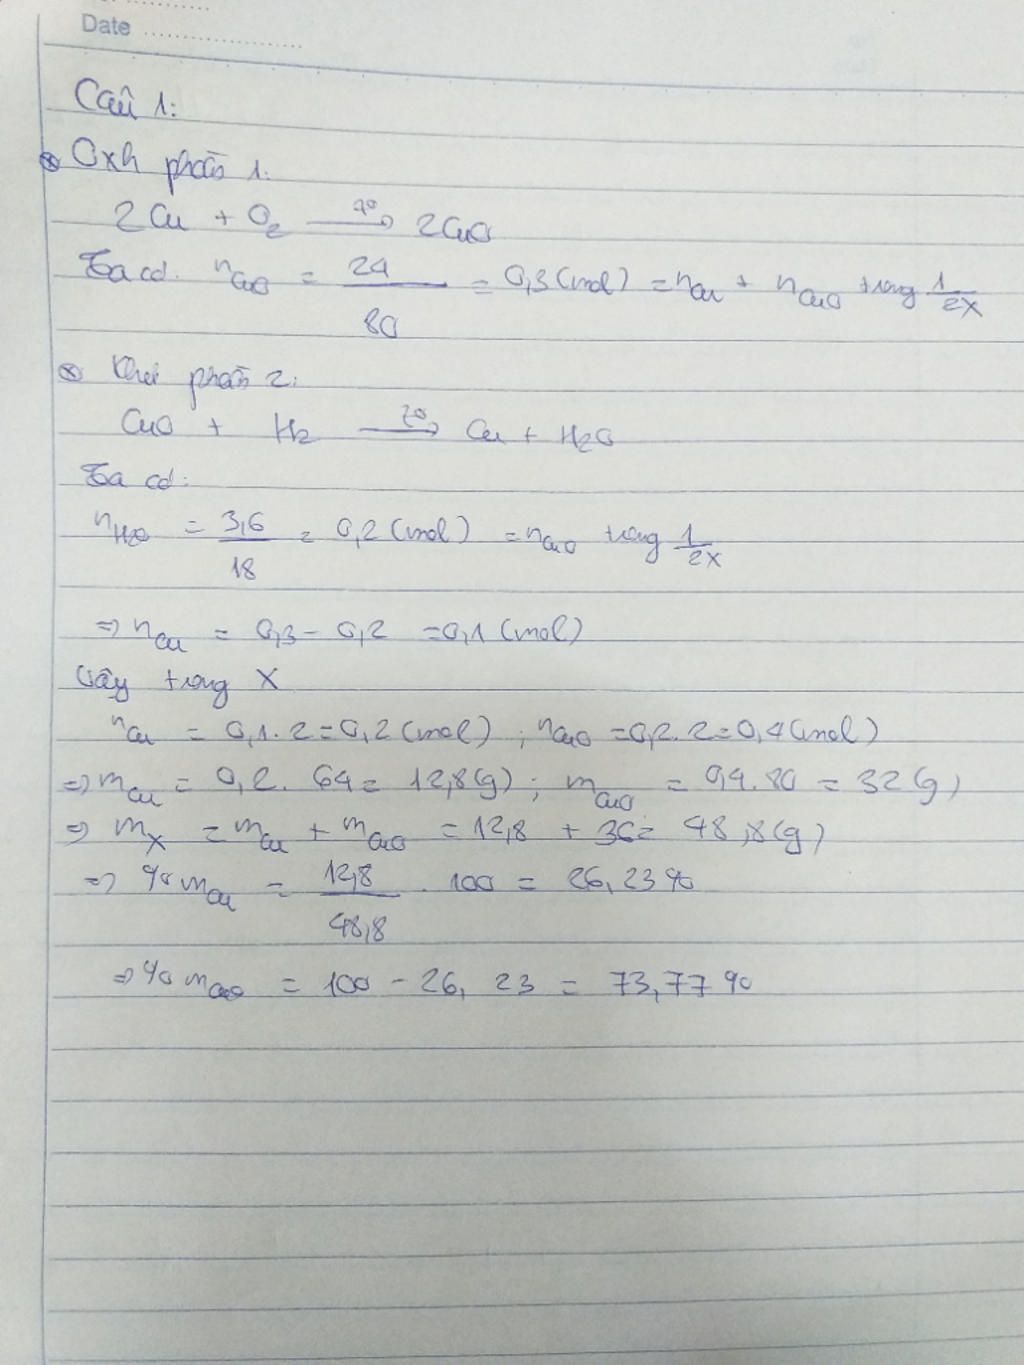 Date
Câu 1:
⊗ Oxh phần 1:
2Cu + O2 →(t°) 2CuO
Ta có: nCuO = 24/80 = 0,3 (mol) = nCu + nCuO trong 1/2X
⊗ Khử phần 2:
CuO + H2 →(t°) Cu + H2O
Ta có:
nH2O = 3,6/18 = 0,2 (mol) = nCuO trong 1/2X
⇒ nCu = 0,3 - 0,2 = 0,1 (mol)
Vậy trong X
nCu = 0,1.2 = 0,2 (mol) ; nCuO = 0,2.2 = 0,4 (mol)
⇒ mCu = 0,2.64 = 12,8 (g) ; mCuO = 0,4.80 = 32 (g)
⇒ mX = mCu + mCuO = 12,8 + 36 = 48,8 (g)
⇒ %mCu = 12,8/48,8 . 100 = 26,23%
⇒ %mCuO = 100 - 26,23 = 73,77%